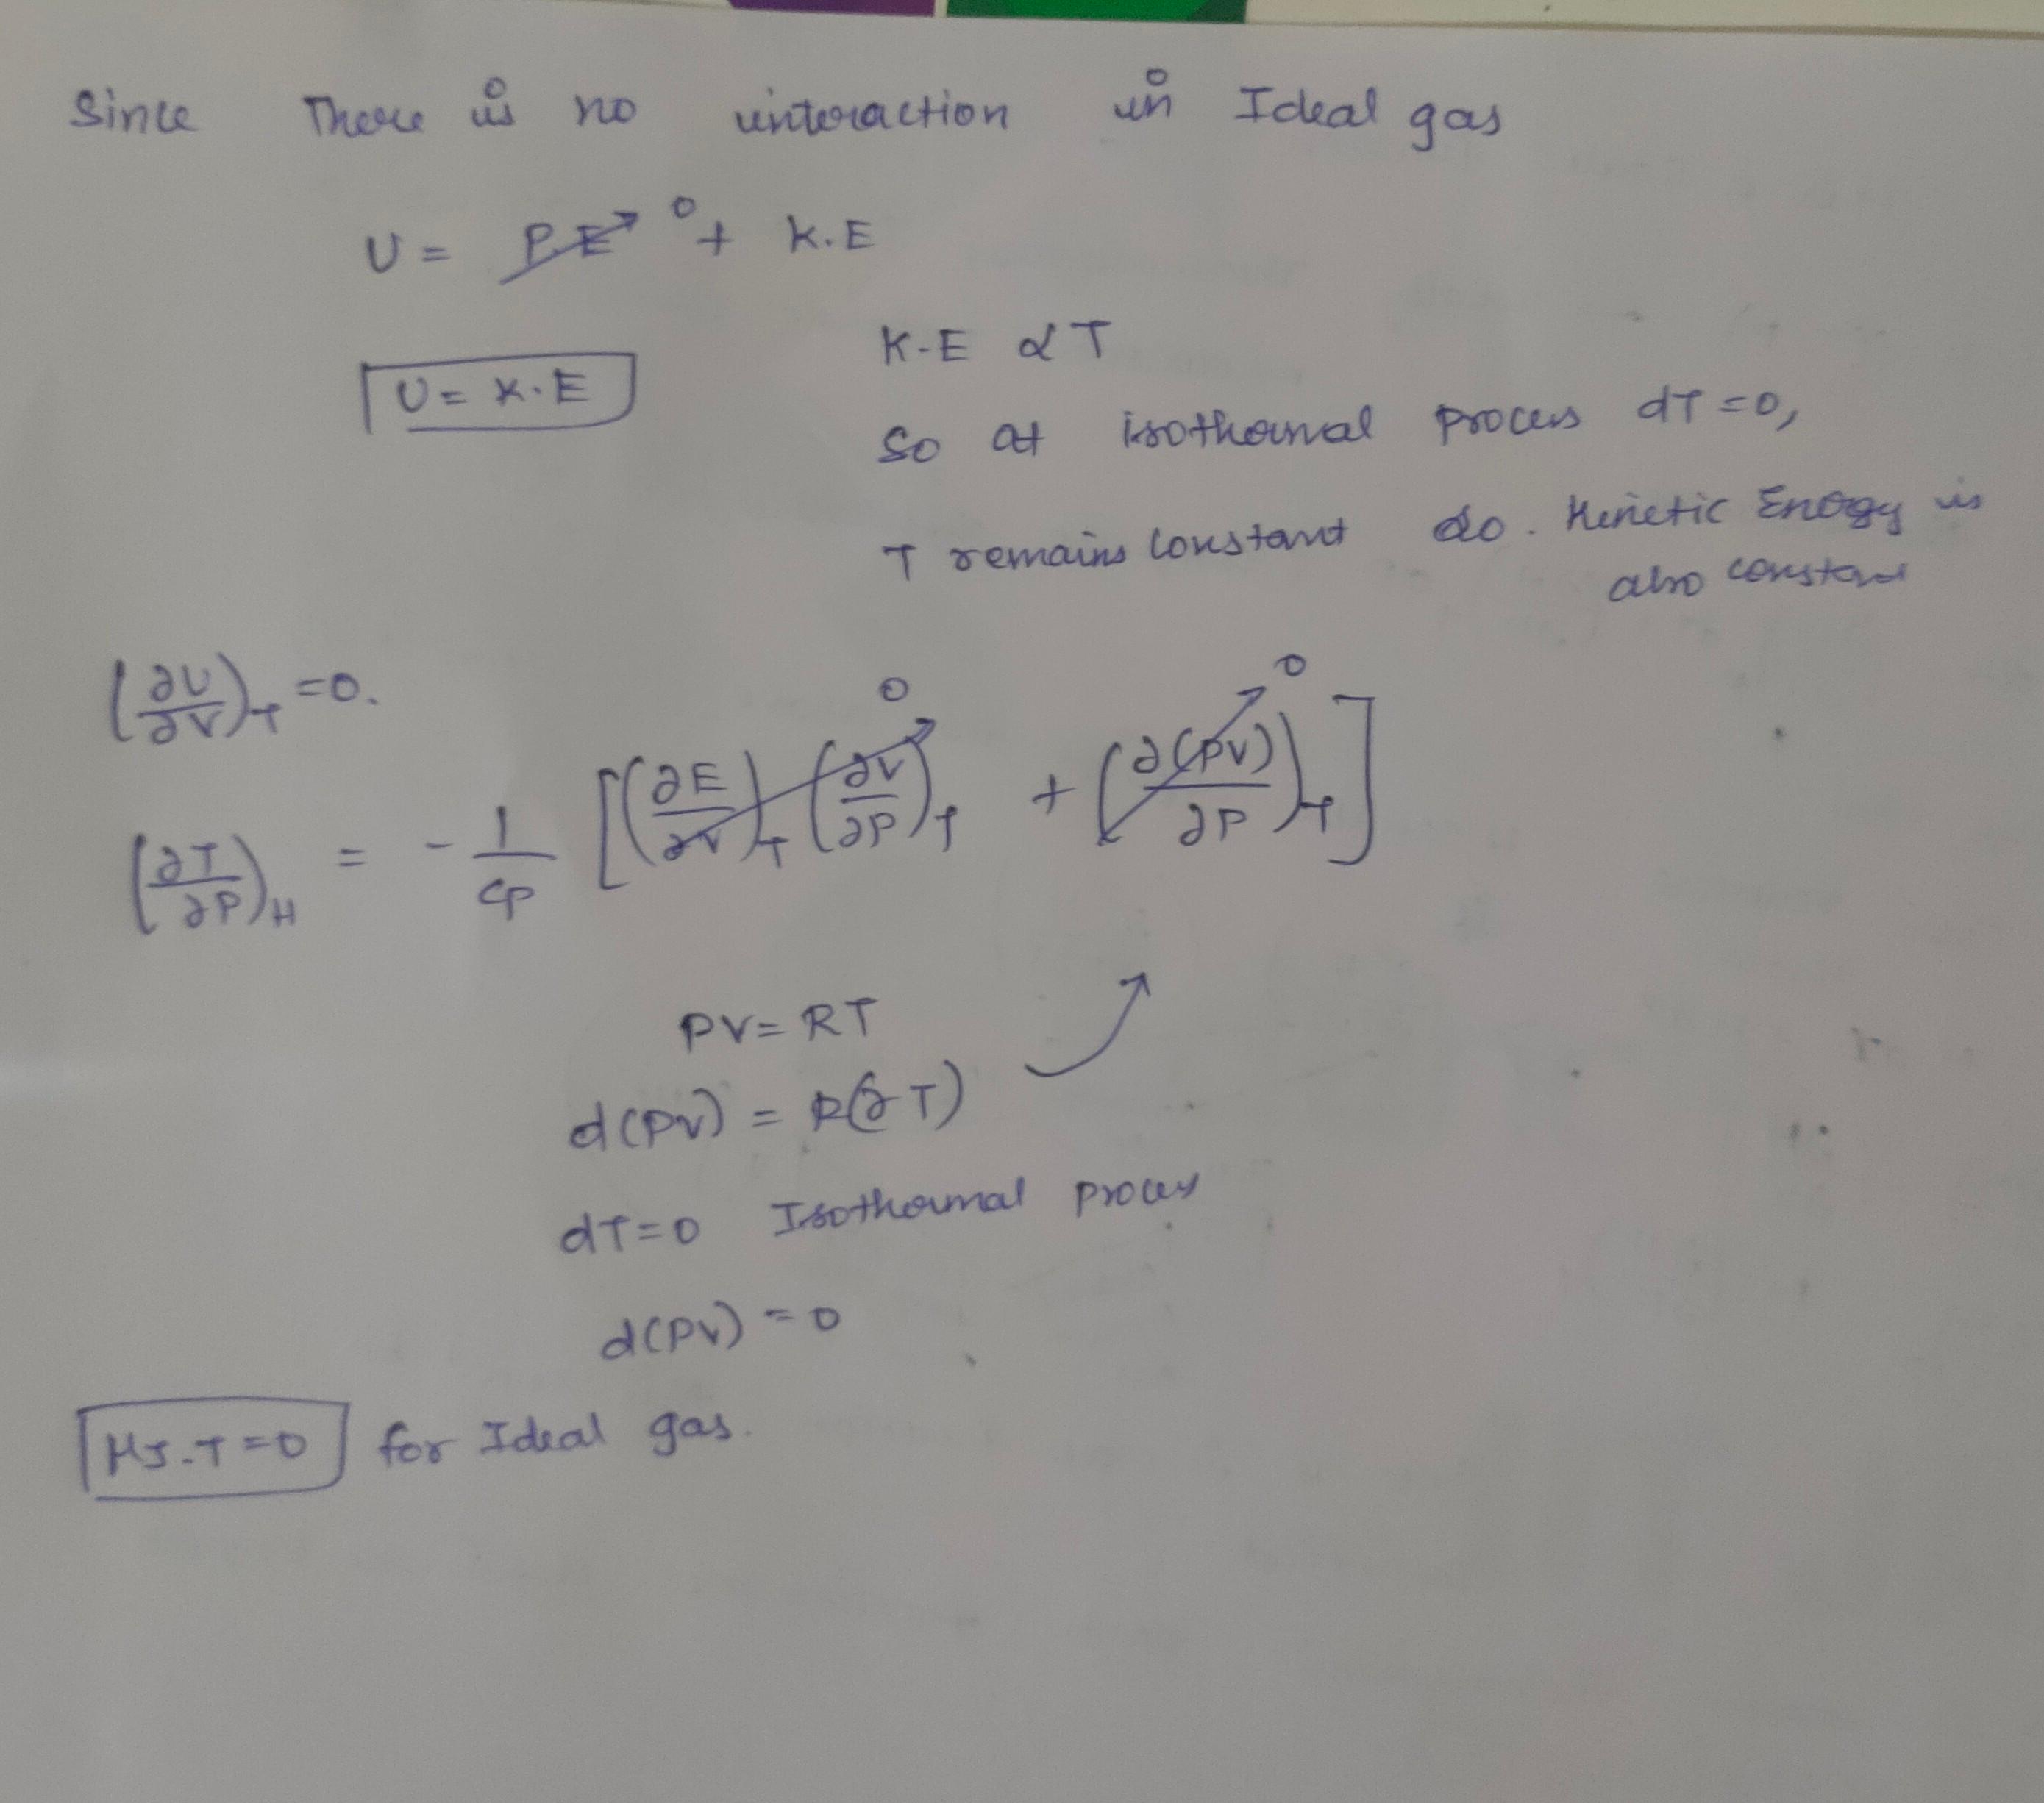 Since There is no interaction in Ideal gas
U = P.E → 0 + K.E
U = K.E
K.E α T
So at isothermal process dT = 0,
T remains constant so. Kinetic Energy is
also constant
(∂U/∂V)T = 0.
(∂T/∂P)H = - 1/Cp [(∂E/∂V)T (∂V/∂P)T → 0 + (∂(PV)/∂P)T → 0]
PV = RT
d(PV) = R(∂T)
dT = 0 Isothermal process
d(PV) = 0
μJ.T = 0 for Ideal gas.